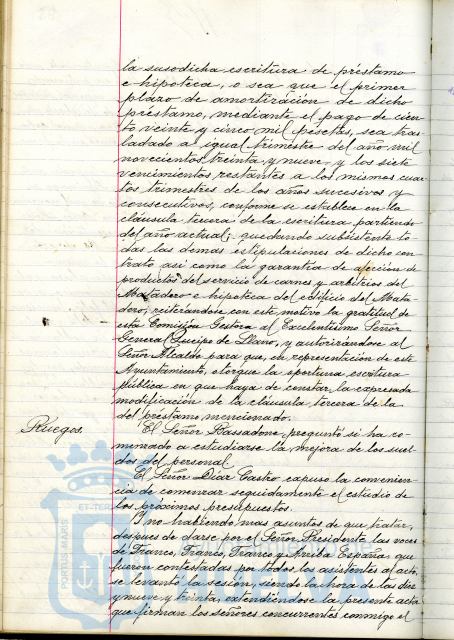 la susodicha escritura de préstamo
e hipoteca, o sea que el primer
plazo de amortización de dicho
préstamo, mediante el pago de cien-
to veinte y cinco mil pesetas, sea tras-
ladado al igual trimestre del año mil
novecientos treinta y nueve, y los siete
vencimientos restantes a los mismos cuar-
tos trimestres de los años sucesivos y
consecutivos, conforme se establece en la
cláusula tercera de la escritura partiendo
del año actual; quedando subsistente to-
das las demas estipulaciones de dicho con-
trato asi como la garantia de afección de
productos del servicio de carnes y arbitrios del
Matadero e hipoteca del edificio del Mata-
dero, reiterándose con este motivo la gratitud de
esta Comisión Gestora al Excelentísimo Señor
General Queipo de Llano, y autorizándose al
Señor Alcalde para que, en representación de este
Ayuntamiento, otorgue la oportuna escritura
pública en que haya de constar la expresada
modificación de la cláusula tercera de la
del préstamo mencionado.
Ruegos.
El Señor preguntó si ha co-
menzado a estudiarse la mejora de los suel-
dos del personal
El Señor Díaz Castro expuso la convenien-
cia de comenzar seguidamente el estudio de
los próximos presupuestos.
Y no habiendo mas asuntos de que tratar,
despues de darse por el Señor Presidente las voces
de Franco, Franco, Franco y Arriba España, que
fueron contestadas por todos los asistentes al acto,
se levantó la sesión, siendo la hora de las diez
y nueve y treinta, extendiéndose la presente acta
que firman los señores concurrentes conmigo el
PORTUS MARIS
ET TER